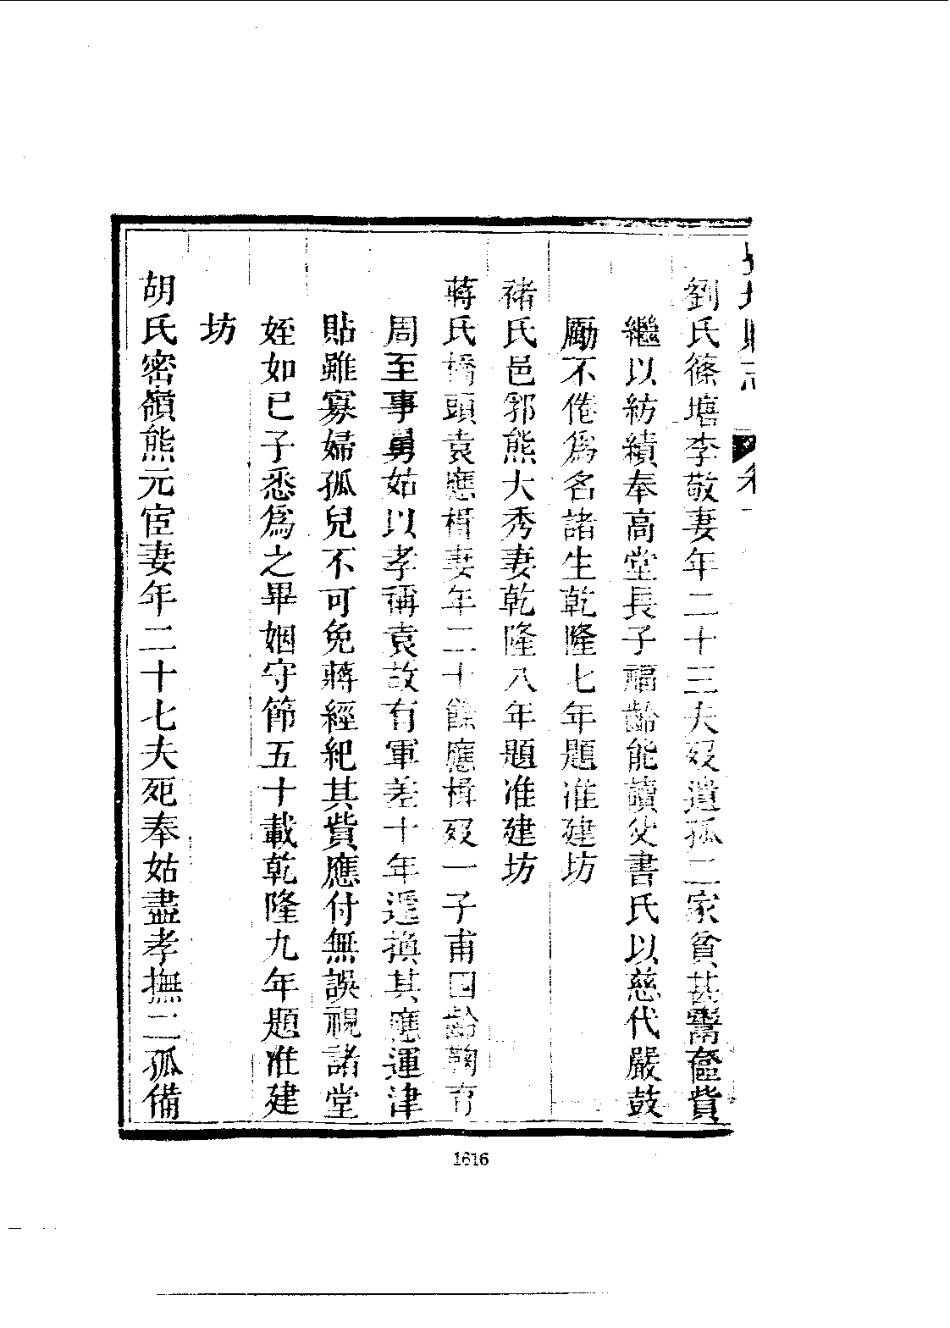 劉氏篠塘李敬妻年二十三夫歿遺孤二家貧甚鬻奩貲
繼以紡績奉高堂長子福齡能讀父書氏以慈代嚴鼓
勵不倦爲名諸生乾隆七年題准建坊
褚氏邑郭熊大秀妻乾隆八年題准建坊
蔣氏橋頭袁應楫妻年二十餘應楫歿一子甫四齡鞠育
周至事舅姑以孝稱袁故有軍差十年遞換其應運津
貼雖寡婦孤兒不可免蔣經紀其貲應付無誤視諸堂
姪如已子悉爲之畢姻守節五十載乾隆九年題准建
坊
胡氏密嶺熊元宦妻年二十七夫死奉姑盡孝撫二孤備
1616